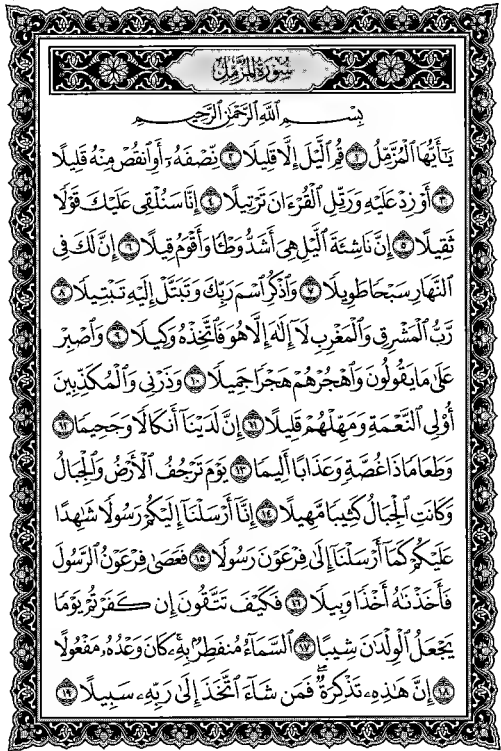 سُورَةُ المُزَّمِّلِ
بِسْمِ اللَّهِ الرَّحْمَٰنِ الرَّحِيمِ
يَٰٓأَيُّهَا ٱلْمُزَّمِّلُ ١ قُمِ ٱلَّيْلَ إِلَّا قَلِيلًا ٢ نِّصْفَهُۥٓ أَوِ ٱنقُصْ مِنْهُ قَلِيلًا
٣ أَوْ زِدْ عَلَيْهِ وَرَتِّلِ ٱلْقُرْءَانَ تَرْتِيلًا ٤ إِنَّا سَنُلْقِى عَلَيْكَ قَوْلًا
ثَقِيلًا ٥ إِنَّ نَاشِئَةَ ٱلَّيْلِ هِىَ أَشَدُّ وَطْـًٔا وَأَقْوَمُ قِيلًا ٦ إِنَّ لَكَ فِى
ٱلنَّهَارِ سَبْحًا طَوِيلًا ٧ وَٱذْكُرِ ٱسْمَ رَبِّكَ وَتَبَتَّلْ إِلَيْهِ تَبْتِيلًا ٨
رَّبُّ ٱلْمَشْرِقِ وَٱلْمَغْرِبِ لَآ إِلَٰهَ إِلَّا هُوَ فَٱتَّخِذْهُ وَكِيلًا ٩ وَٱصْبِرْ
عَلَىٰ مَا يَقُولُونَ وَٱهْجُرْهُمْ هَجْرًا جَمِيلًا ١٠ وَذَرْنِى وَٱلْمُكَذِّبِينَ
أُو۟لِى ٱلنَّعْمَةِ وَمَهِّلْهُمْ قَلِيلًا ١١ إِنَّ لَدَيْنَآ أَنكَالًا وَجَحِيمًا ١٢
وَطَعَامًا ذَا غُصَّةٍ وَعَذَابًا أَلِيمًا ١٣ يَوْمَ تَرْجُفُ ٱلْأَرْضُ وَٱلْجِبَالُ
وَكَانَتِ ٱلْجِبَالُ كَثِيبًا مَّهِيلًا ١٤ إِنَّآ أَرْسَلْنَآ إِلَيْكُمْ رَسُولًا شَٰهِدًا
عَلَيْكُمْ كَمَآ أَرْسَلْنَآ إِلَىٰ فِرْعَوْنَ رَسُولًا ١٥ فَعَصَىٰ فِرْعَوْنُ ٱلرَّسُولَ
فَأَخَذْنَٰهُ أَخْذًا وَبِيلًا ١٦ فَكَيْفَ تَتَّقُونَ إِن كَفَرْتُمْ يَوْمًا
يَجْعَلُ ٱلْوِلْدَٰنَ شِيبًا ١٧ ٱلسَّمَآءُ مُنفَطِرٌۢ بِهِۦ ۚ كَانَ وَعْدُهُۥ مَفْعُولًا
١٨ إِنَّ هَٰذِهِۦ تَذْكِرَةٌ ۖ فَمَن شَآءَ ٱتَّخَذَ إِلَىٰ رَبِّهِۦ سَبِيلًا ١٩